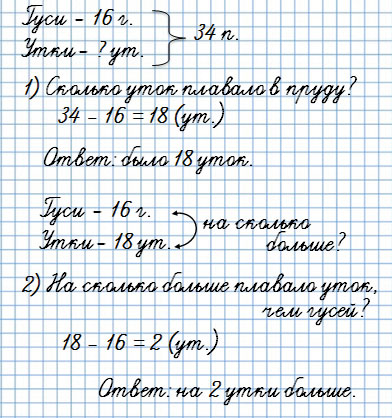 Гуси – 16 г.
Утки – ? ут.
34 п.
1) Сколько уток плавало в пруду?
34 – 16 = 18 (ут.)
Ответ: было 18 уток.
Гуси – 16 г.
Утки – 18 ут.
на сколько
больше?
2) На сколько больше плавало уток,
чем гусей?
18 – 16 = 2 (ут.)
Ответ: на 2 утки больше.